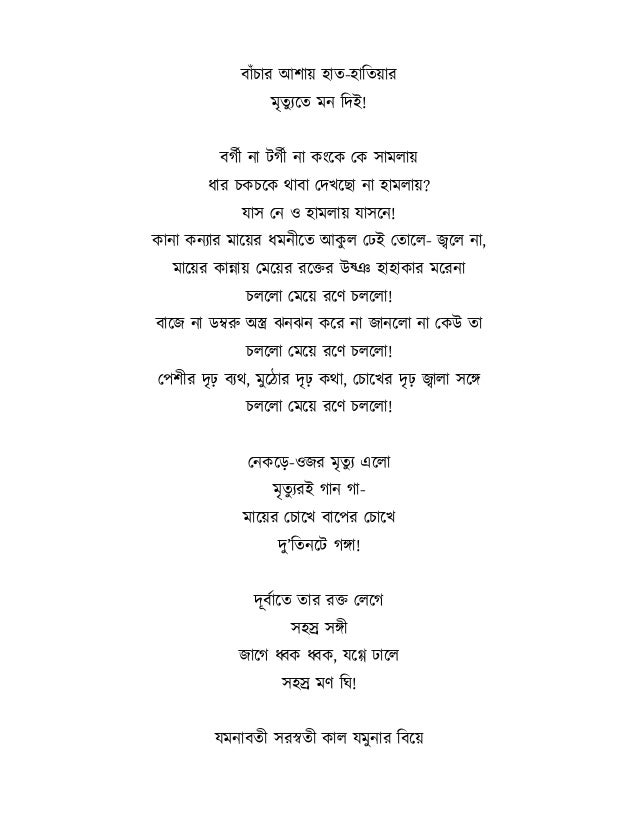 বাঁচার আশায় হাত-হাতিয়ার
মৃত্যুতে মন দিই!
বর্গী না টর্গী না কংকে কে সামলায়
ধার চকচকে থাবা দেখছো না হামলায়?
যাস নে ও হামলায় যাসনে!
কানা কন্যার মায়ের ধমনীতে আকুল ঢেই তোলে- জ্বলে না,
মায়ের কান্নায় মেয়ের রক্তের উষ্ঞ হাহাকার মরেনা
চললো মেয়ে রণে চললো!
বাজে না ডম্বরু অস্ত্র ঝনঝন করে না জানলো না কেউ তা
চললো মেয়ে রণে চললো!
পেশীর দৃঢ় ব্যথ, মুঠোর দৃঢ় কথা, চোখের দৃঢ় জ্বালা সঙ্গে
চললো মেয়ে রণে চললো!
নেকড়ে-ওজর মৃত্যু এলো
মৃত্যুরই গান গা-
মায়ের চোখে বাপের চোখে
দু’তিনটে গঙ্গা!
দূর্বাতে তার রক্ত লেগে
সহস্র সঙ্গী
জাগে ধ্বক ধ্বক, যগ্গে ঢালে
সহস্র মণ ঘি!
যমনাবতী সরস্বতী কাল যমুনার বিয়ে